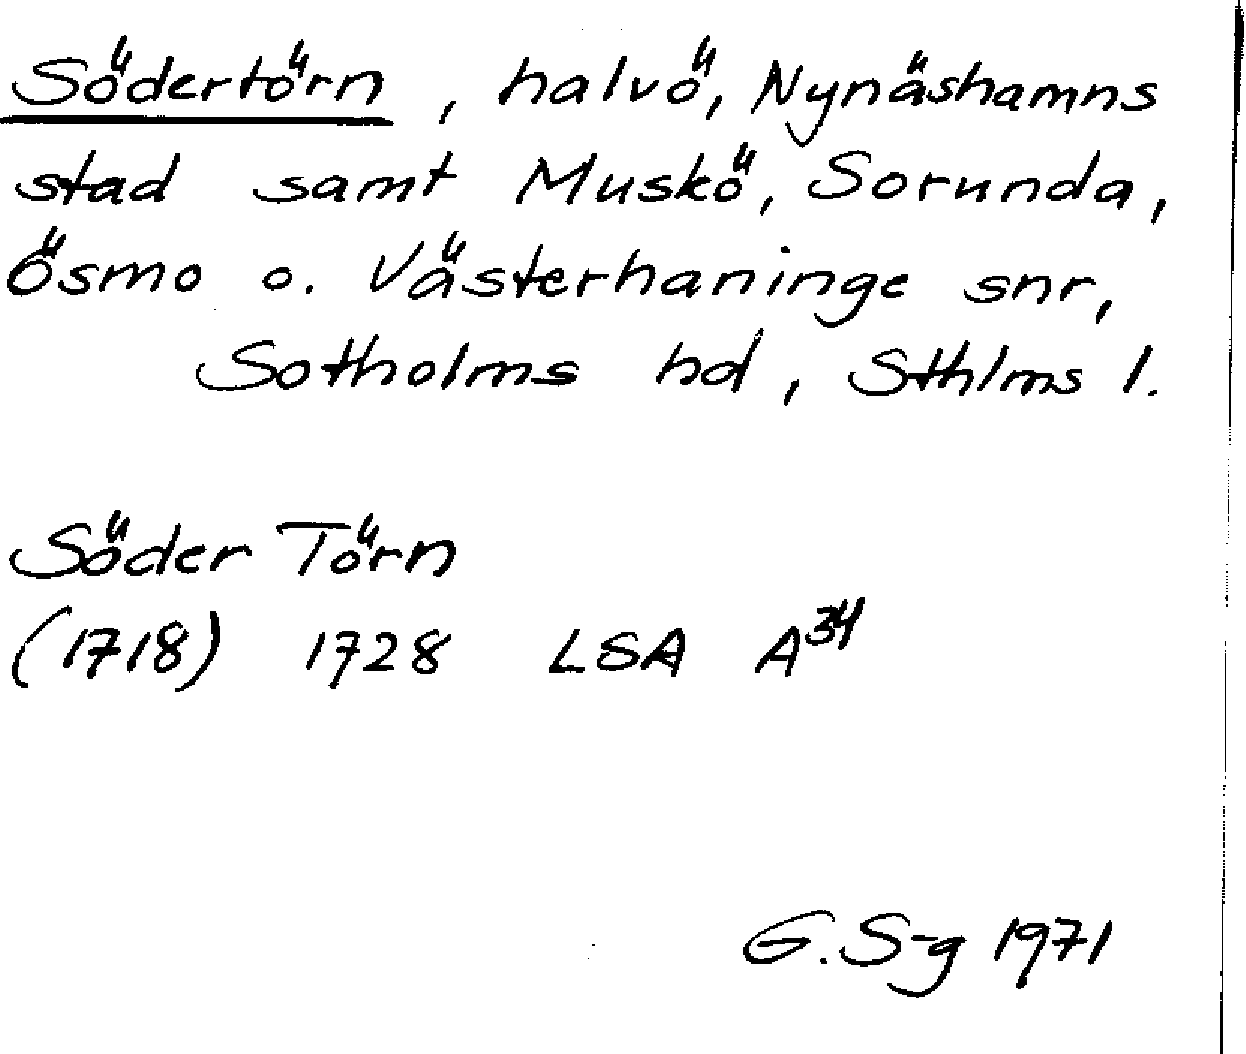 Södertörn, halvö, Nynäshamns
stad samt Muskö, Sorunda,
Ösmo o. Västerhaninge snr,
Sotholms hd, Sthlms l.
Söder Törn
(1718) 1728 LSA A³⁴
G. S-g 1971